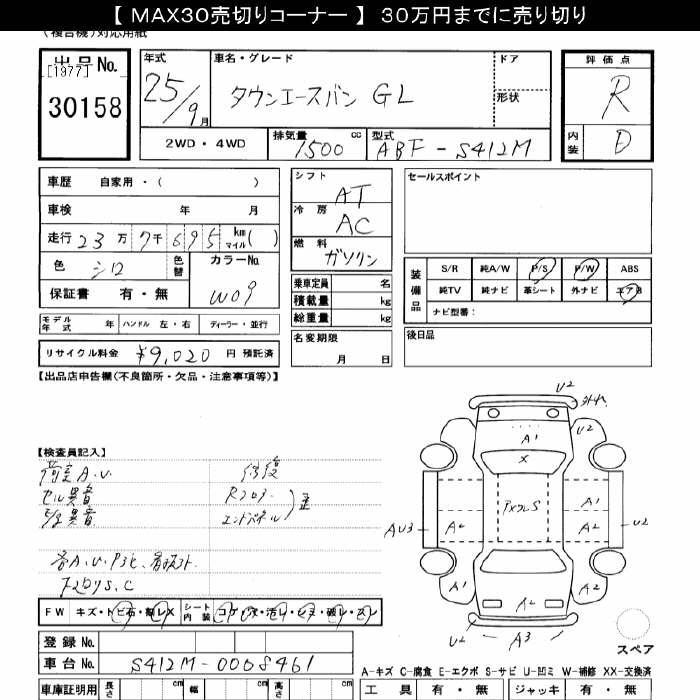 【 MAX30売切りコーナー 】 30万円までに売り切り
(複合機)対応用紙
出品No.
[1977]
30158
年式
25/9月
車名・グレード
タウンエースバン GL
ドア
形状
2WD・4WD
排気量 1500 cc
型式 ABF-S412M
評価点
R
内装 D
車歴 自家用・( )
車検 年 月
走行 23万7千695 km マイル( )
色 シロ 色替
カラーNo. W09
保証書 有・無
モデル年式 年 ハンドル 左・右 ディーラー・並行
リサイクル料金 ¥9,020 円 預託済
シフト AT
冷房 AC
燃料 ガソリン
乗車定員 名
積載量 kg
総重量 kg
名変期限
月 日
セールスポイント
装備品
S/R 純A/W P/S P/W ABS
純TV 純ナビ 革シート 外ナビ エアB
ナビ型番:
後日品
【出品店申告欄(不良箇所・欠品・注意事項等)】
【検査員記入】
荷室A.U. 修復
セル異音 Rフロア
エンドパネル
歪
FW キズ・トビ石・割レX シート内装 コゲ・穴・汚レ・シミ・破レ・スレ
登録No.
車台No. S412M-0008461
車庫証明用 長さ cm 幅 cm 高さ cm
U2
U2
A1
X
PXフルS
AU3
A2
A1
A2
U2
A1
A2
A1
U2
A3
スペア
A-キズ C-腐食 E-エクボ S-サビ U-凹ミ W-補修 XX-交換済
工具 有・無 ジャッキ 有・無